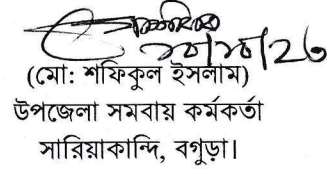 ১০/১০/২৩
(মো: শফিকুল ইসলাম)
উপজেলা সমবায় কর্মকর্তা
সারিয়াকান্দি, বগুড়া।